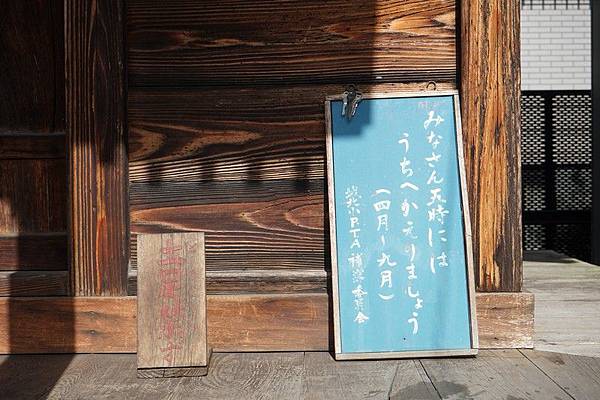 みなさん五時には
うちへかえりましょう
(四月~九月)
城北小P.T.A 補導委員会